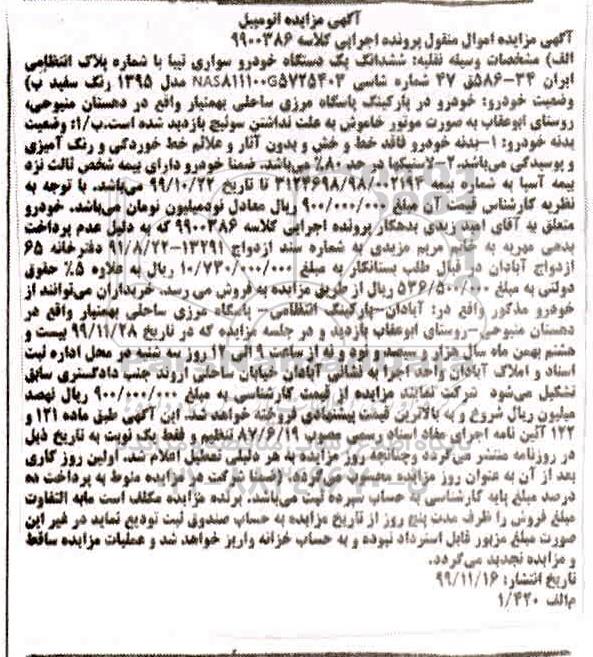 آگهی مزایده اتومبیل
آگهی مزایده اموال منقول پرونده اجرایی کلاسه ۹۹۰۰۳۸۶
الف) مشخصات وسیله نقلیه: ششدانگ یک دستگاه خودرو سواری تیبا با شماره پلاک انتظامی
ایران ۳۴-۵۸۶ق ۴۷ شماره شاسی NAS۸۱۱۱۰۰G۵۷۲۵۴۰۳ مدل ۱۳۹۵ رنگ سفید ب)
وضعیت خودرو: خودرو در پارکینگ پاسگاه مرزی ساحلی بهمنیار واقع در دهستان منیوحی،
روستای ابوعقاب به صورت موتور خاموش به علت نداشتن سوئیچ بازدید شده است.ب/۱: وضعیت
بدنه خودرو: ۱-بدنه خودرو فاقد خط و خش و بدون آثار و علائم خط خوردگی و رنگ آمیزی
و پوسیدگی می‌باشد. ۲-لاستیکها در حد ۸۰٪ می‌باشد، ضمنا خودرو دارای بیمه شخص ثالث نزد
بیمه آسیا به شماره بیمه ۳۱۲۳۶۹۸/۹۸/۰۰۲۱۹۳ تا تاریخ ۹۹/۱۰/۲۳ می‌باشد. با توجه به
نظریه کارشناس قیمت آن مبلغ ۹۰۰/۰۰۰/۰۰۰ ریال معادل نودمیلیون تومان می‌باشد. خودرو
متعلق به آقای امید یزیدی بدهکار پرونده اجرایی کلاسه ۹۹۰۰۳۸۶ که به دلیل عدم پرداخت
بدهی مهریه به خانم مریم مزیدی به شماره سند ازدواج ۱۳۲۹۱-۹۱/۸/۲۲ دفترخانه ۶۵
ازدواج آبادان در قبال طلب بستانکار به مبلغ ۱۰/۷۳۰/۰۰۰/۰۰۰ ریال به علاوه ۵٪ حقوق
دولتی به مبلغ ۵۳۶/۵۰۰/۰۰۰ ریال از طریق مزایده به فروش می رسد. خریداران می‌توانند از
خودرو مذکور واقع در: آبادان-پارکینگ انتظامی- پاسگاه مرزی ساحلی بهمنیار واقع در
دهستان منیوحی-روستای ابوعقاب بازدید و در جلسه مزایده که در تاریخ ۹۹/۱۱/۲۸ بیست و
هشتم بهمن ماه سال هزار و سیصدو نود و نه از ساعت ۹ الی ۱۲ روز سه شنبه در محل اداره ثبت
اسناد و املاک آبادان واحد اجرا به نشانی آبادان خیابان ساحلی اروند جنب دادگستری سابق
تشکیل می‌شود شرکت نمایند مزایده از قیمت کارشناسی به مبلغ ۹۰۰/۰۰۰/۰۰۰ ریال نهصد
میلیون ریال شروع و به بالاترین قیمت پیشنهادی فروخته خواهد شد. این آگهی طبق ماده ۱۲۱ و
۱۲۲ آئین نامه اجرای مفاد اسناد رسمی مصوب ۸۷/۶/۱۹ تنظیم و فقط یک نوبت به تاریخ ذیل
در روزنامه منتشر می‌گردد وچنانچه روز مزایده به هر دلیلی تعطیل اعلام شد، اولین روز کاری
بعد از آن به عنوان روز مزایده محسوب می‌گردد. (ضمنا شرکت در مزایده منوط به پرداخت ده
درصد مبلغ پایه کارشناسی به حساب سپرده ثبت می‌باشد. برنده مزایده مکلف است مابه التفاوت
مبلغ فروش را ظرف مدت پنج روز از تاریخ مزایده به حساب صندوق ثبت تودیع نماید در غیر این
صورت مبلغ مزبور قابل استرداد نبوده و به حساب خزانه واریز خواهد شد و عملیات مزایده ساقط
و مزایده تجدید می‌گردد.
تاریخ انتشار: ۹۹/۱۱/۱۶
م‌الف ۱/۴۲۰